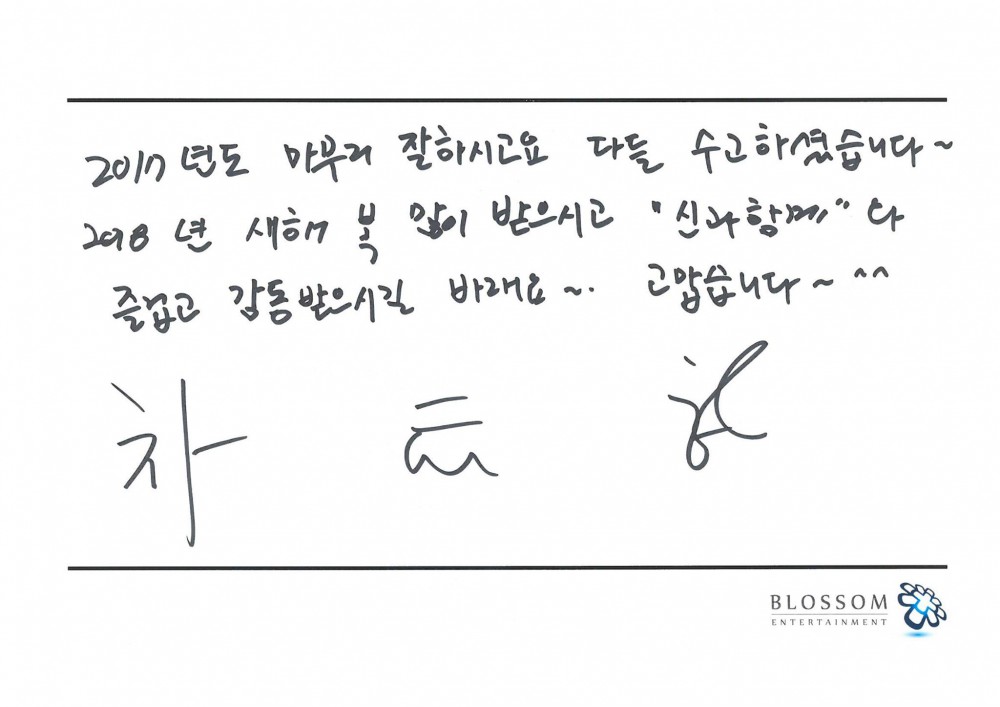 2017년도 마무리 잘하시고요 다들 수고하셨습니다~
2018년 새해 복 많이 받으시고 "신과함께"다
즐겁고 감동받으시길 바래요~. 고맙습니다~^^
차
BLOSSOM
ENTERTAINMENT